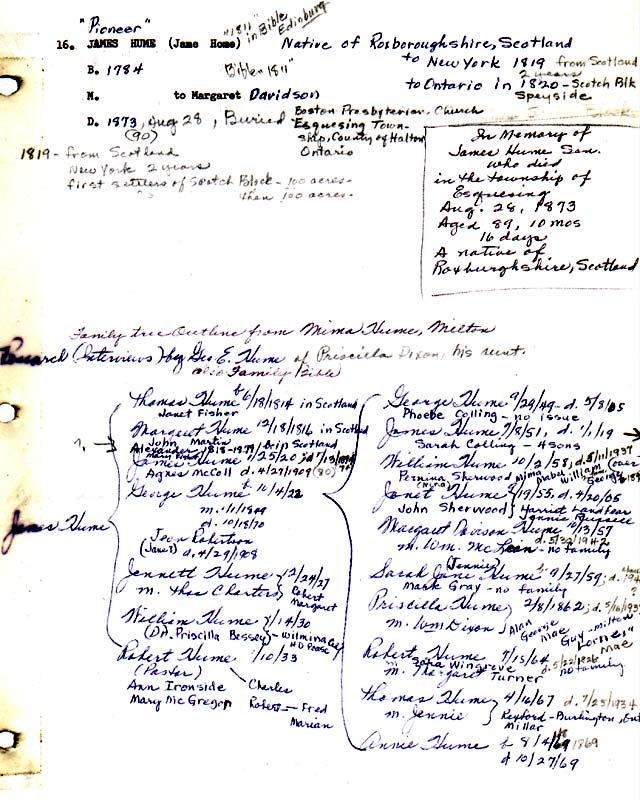 "Pioneer"
"1811" in Bible Edinburg
16. JAMES HUME (Jame Home) Native of Roxboroughshire, Scotland
to New York 1819 from Scotland
2 years
B. 1784 "Bible - 1811" to Ontario in 1820 - Scotch Blk
Speyside
M. to Margaret Davidson
D. 1873, Aug 28, Buried Boston Presbyterian Church
(90) Esquesing Town-
ship, County of Halton
Ontario
1819 - from Scotland
New York 2 years
first settlers of Scotch Block - 100 acres -
then 100 acres -
In Memory of
James Hume Sen.
who died
in the township of
Esquesing
Aug. 28, 1873
Aged 89, 10 mos
16 days
A native of
Roxburghshire, Scotland
Family tree Outline from Mima Hume, Milton
Research (Interviews) by Geo E. Hume of Priscilla Dixon, his aunt.
also Family Bible
James Hume
Thomas Hume b 6/18/1814 in Scotland
Janet Fisher
Margaret Hume 12/18/1816 in Scotland
John Martin
Alexander 1818-1877 / b in Scotland
James Hume 7/25/20
Agnes McColl d. 4/27/1909 (80)
George Hume b 10/4/22
m.
d. 10/18/70
Jean Robertson
(Janet) d. 4/29/1908
Jennett Hume 12/24/27
m. Thos Charters Robert
Margaret
William Hume 7/14/30
(Dr. Priscilla Bessey) - Wilmina
Robert Hume 7/10/33
(Pastor)
Ann Ironside Charles
Mary McGregor Robert - Fred
Marian
George Hume 9/29/49 - d. 5/8/05
Phoebe Colling - no issue
James Hume 7/8/51, d. 7/1/19
Sarah Colling - 4 sons
William Hume 10/2/53, d. 5/11/1937 (over-
Permina Sherwood Mima Mabel William George
(Mina)
Janet Hume 7/19/55, d. 4/20/05
John Sherwood Harriet
Jennie
Margaret Davison Hume 10/3/57
d. 5/22/1942
m. Wm. McLean - no family
(Jennie)
Sarah Jane Hume b. 9/27/59; d.
Mark Gray - no family
Priscilla Hume 2/8/1862; d. 5/16/193
m. Wm Dixon Alan
George
Mae
Guy - Milton
Lorne
Mae
Robert Hume 7/15/64
Sara Wingrove d. 5/22/1926
m. Margaret Turner no family
Thomas Hume 4/16/67 d. 7/25/1934
m. Jennie Rexford - Burlington, Ont
Millar
Annie Hume b 8/4/69 1869
d 10/27/69